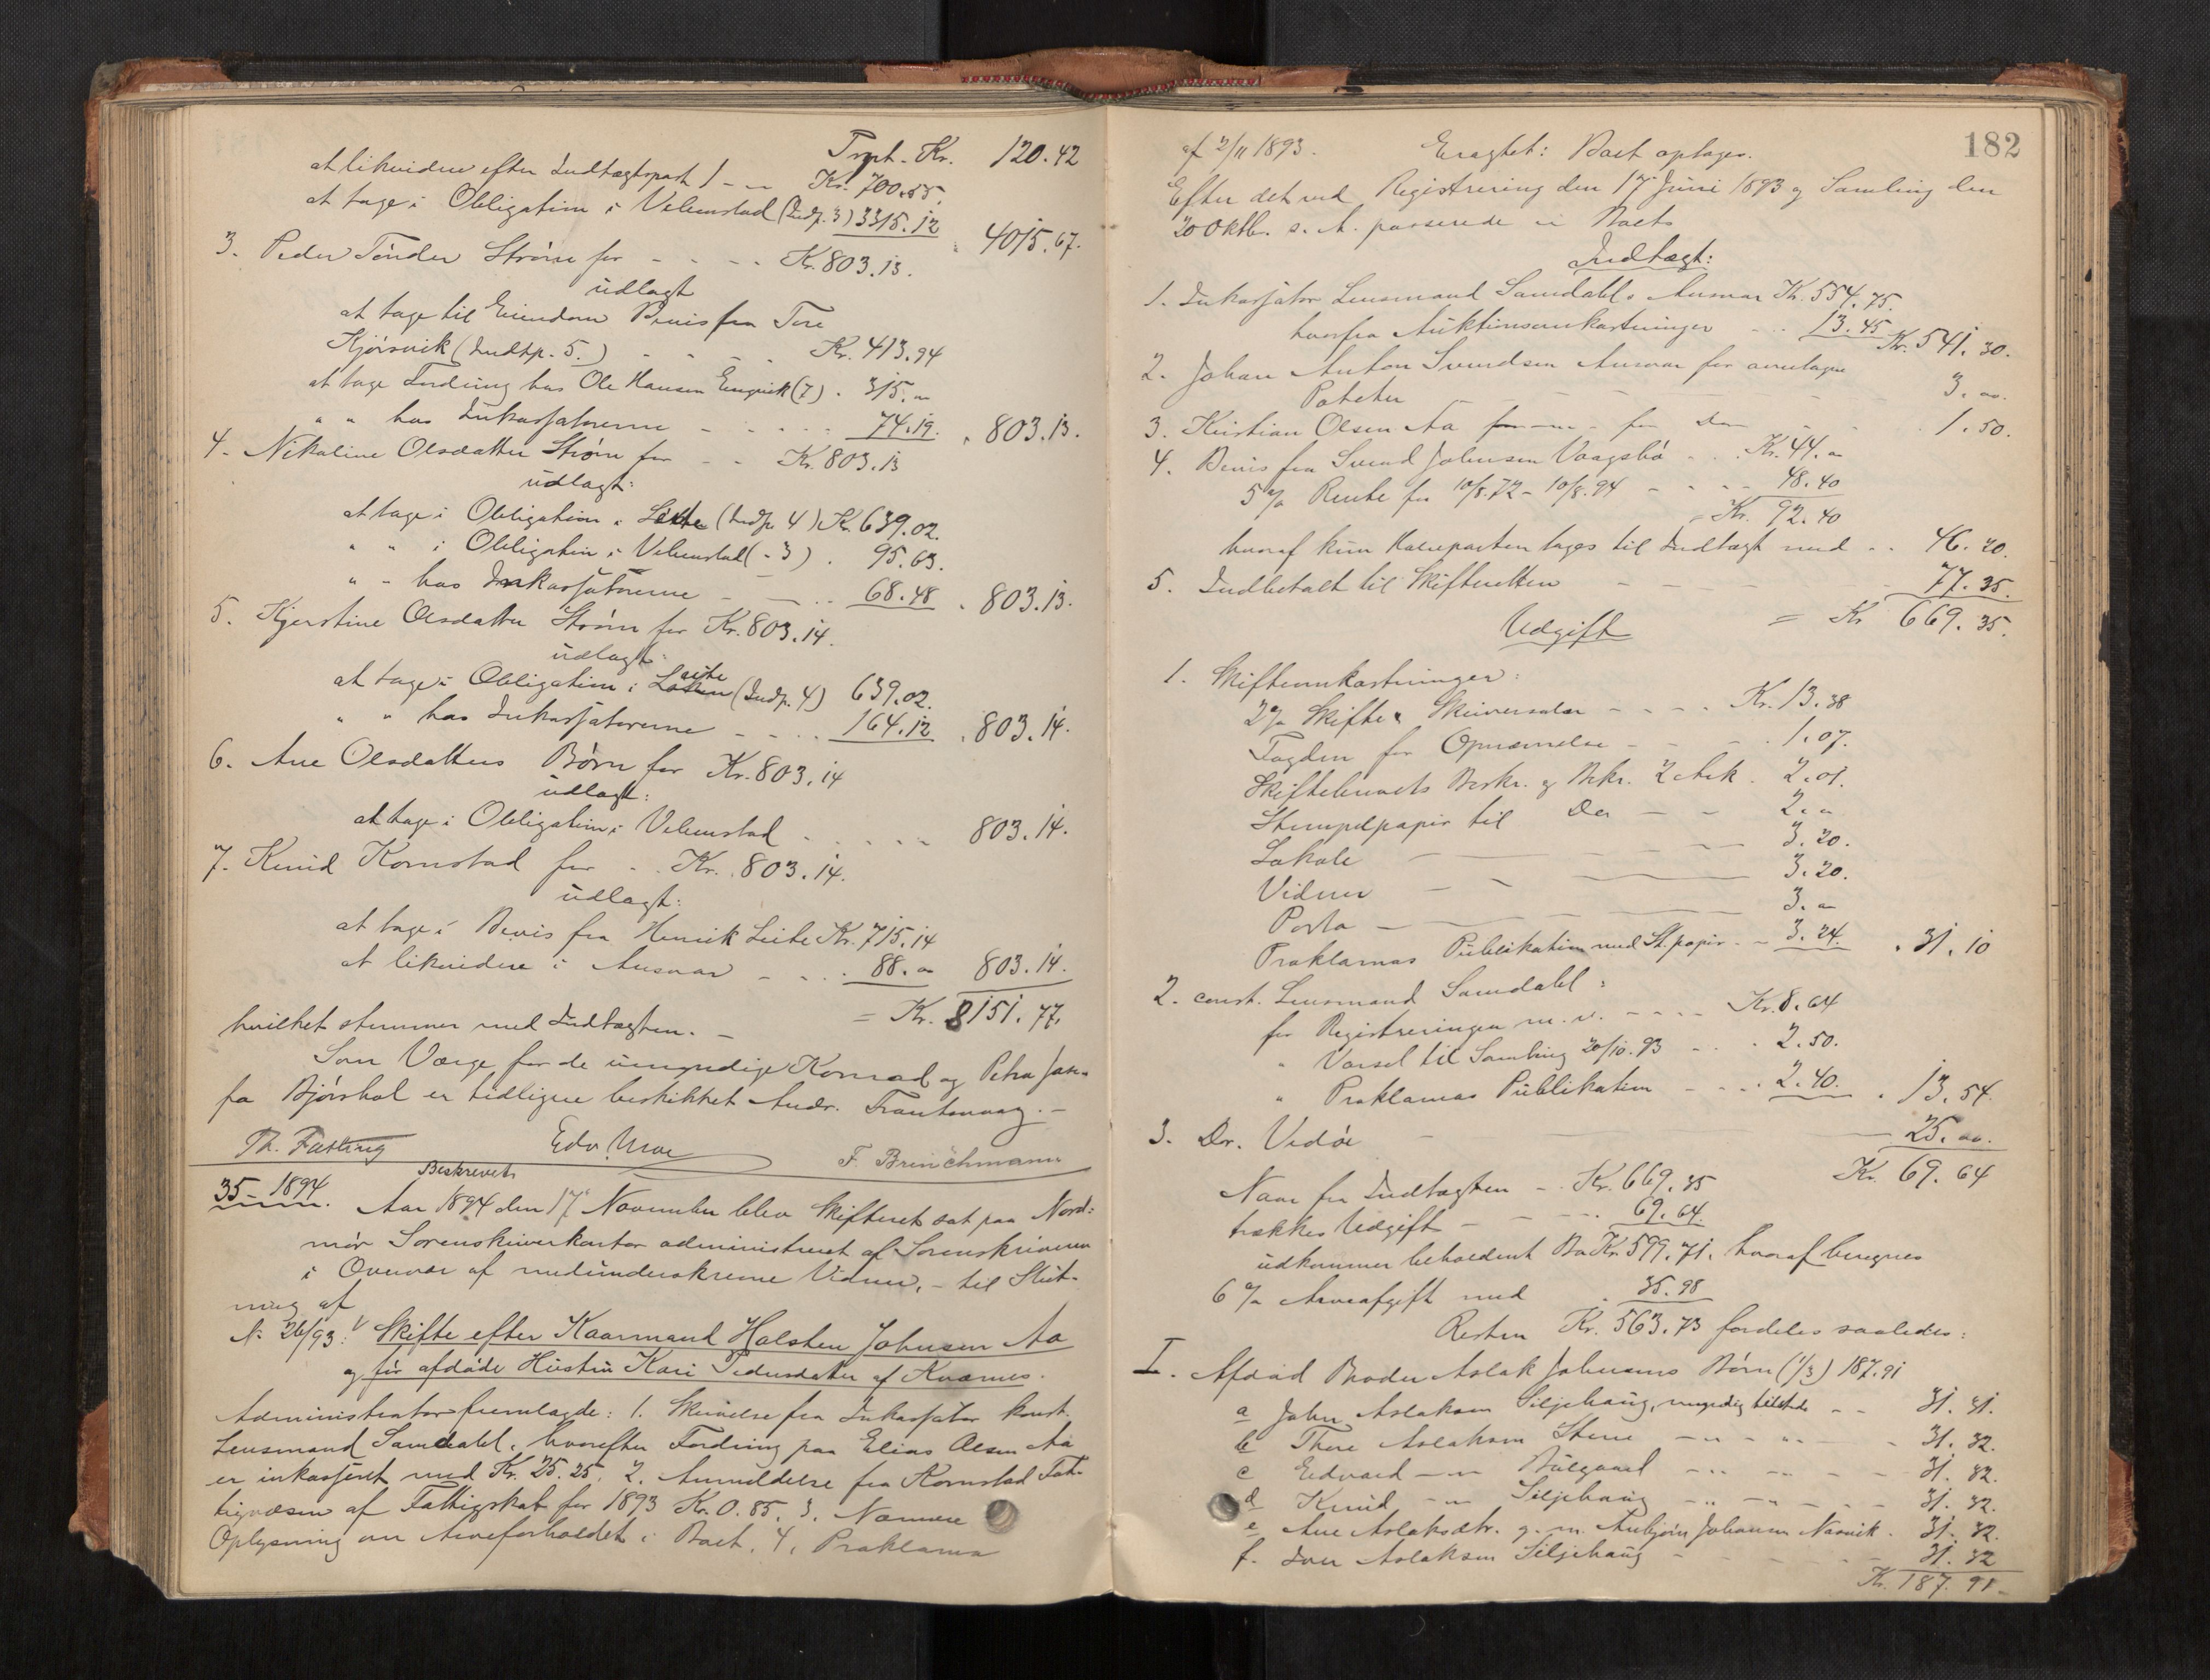 Trpt. Kr. 120.42
at likvidere efter Indtægtspost 1 - " Kr. 700.55.
at tage i Obligation i Velumstad (Indp. 3) 3315.12 " 4015.67.
3. Peder Tønder Strøm for - - - - Kr. 803.13.
udlagt
at tage til Eiendom Bevis fra Tore
Kjørsvik (Indtp. 5.) - - - Kr. 413.94
at tage Fordring hos Ole Hansen (7) . 315. "
" " hos Inkassatorerne - - - - 74.19. " 803.13.
4. Nikoline Olsdatter Strøm for - - Kr. 803.13
udlagt:
at tage i Obligation i Leite (Indp. 4) Kr. 639.02.
" " i Obligation i Velumstad (- 3) . 95.63.
" - hos Inkassatorerne - - .. 68.48 . 803.13.
5. Kjerstine Olsdatter Strøm for Kr. 803.14.
udlagt:
at tage i Obligation i Leite (Indp. 4) 639.02.
" " hos Inkassatorerne - - .. 164.12 . 803.14.
6. Ane Olsdatters Børn for Kr. 803.14
udlagt:
at tage i Obligation i Velumstad - - - - - 803.14.
7. Knud Kornstad for - . Kr. 803.14.
udlagt:
at tage i Bevis fra Henrik Leite Kr. 715.14
at likvidere i Ansvar - - . . 88. " 803.14.
= Kr. 8151.77.
hvilket stemmer med Indtægten. -
Som Værge for de umyndige Konrad og Petra Jas-
fa Bjørshol er tidligere beskikket Andr. Trantenvaag. -
Th. Fasting Edv. Moe F. Brinchmann
Beskrevet
35 - 1894. Aar 1894 den 17 November blev Skifteret sat paa Nord-
mør Sorenskriverkontor administreret af Sorenskriveren
i Overvær af medunderskrevne Vidner, - til Slut-
ning af
N: 26/93: Skifte efter Kaarmand Halsten Johnsen Aa
og før afdøde Hustru Kari Pedersdatter af Kvernes.
Administrator fremlagde: 1. Skrivelse fra Inkassator konst.
Lensmand Samdahl, hvorefter Fordring paa Elias Olsen Aa
er inkasseret med Kr. 25.25. 2. Anmeldelse fra Kornstad Fat-
tigvæsen af Fattigskat for 1893 Kr. 0.85. 3. Nærmere
Oplysning om Arveforholdet i Boet. 4. Proklama
182
af 2/11 1893. Eragtet: Boet optages.
Efter det ved Registrering den 17 Juni 1893 og Samling den
20 Oktb. s. A. passerede er Boets
Indtægt:
1. Inkassator Lensmand Samdahls Ansvar Kr. 554.75.
hvorfra Auktionsomkostninger - .. 13.45 Kr. 541.30.
2. Johan Anton Svendsen Ansvar for annetagne
Poteter - - - - - 3. oo.
3. Kristian Olsen Aa for Do - - . 1.50.
4. Bevis fra Svend Johnsen Vaagsbø - . . Kr. 44. "
5 % Rente fra 10/8.72 - 10/8.94 - - - - 48.40
= Kr. 92.40
hvoraf kun Halvparten tages til Indtægt med .. 46.20.
5. Indbetalt til Skifteretten - - - - 77.35.
= Kr 669.35.
Udgift
1. Skifteomkostninger:
2 % Skifte & Skriversalær - - - - Kr. 13.38
Fogden for Opnævnelse - - - . 1.07.
Skiftebrevets Beskr. og Bekr. 2 Ark . 2.01.
Stempelpapir til Do - - 2. "
Lokale - - - 3.20.
Vidner - - - 3.20.
Porto - - - 3. "
Proklamas Publikation med St. papir - - 3.24. . 31.10
2. const. Lensmand Samdahl:
for Registreringen m. v. - - - - Kr. 8.64
" Varsel til Samling 20/10.93 - . . 2.50.
" Proklamas Publikation - - . . 2.40. . 13.54.
3. Dr. Vedøe - - - 25. oo.
Kr. 69.64
Naar fra Indtægten - . Kr. 669.35
trækkes Udgift - - - - . 69.64.
udkommer beholdent Bo Kr. 599.71. hvoraf beregnes
6 % Arveafgift med . 35.98
Resten Kr. 563.73 fordeles saaledes:
I. Afdød Broder Aslak Johnsens Børn (1/3) 187.91
a John Aslaksen Siljehaug, myndig tilstede - - 31.31.
b Thore Aslaksen Stene - " - " - - 31.32.
c Edvard - " Bølgaard - " - " - - - 31.32.
d Knud - " Siljehaug - " - " - - - 31.32.
e Ane Aslaksdtr. g. m. Anbjørn Johansen Nasvik . 31.32.
f. Iver Aslaksen Siljehaug - - - - - - 31.32
Kr. 187.91 -